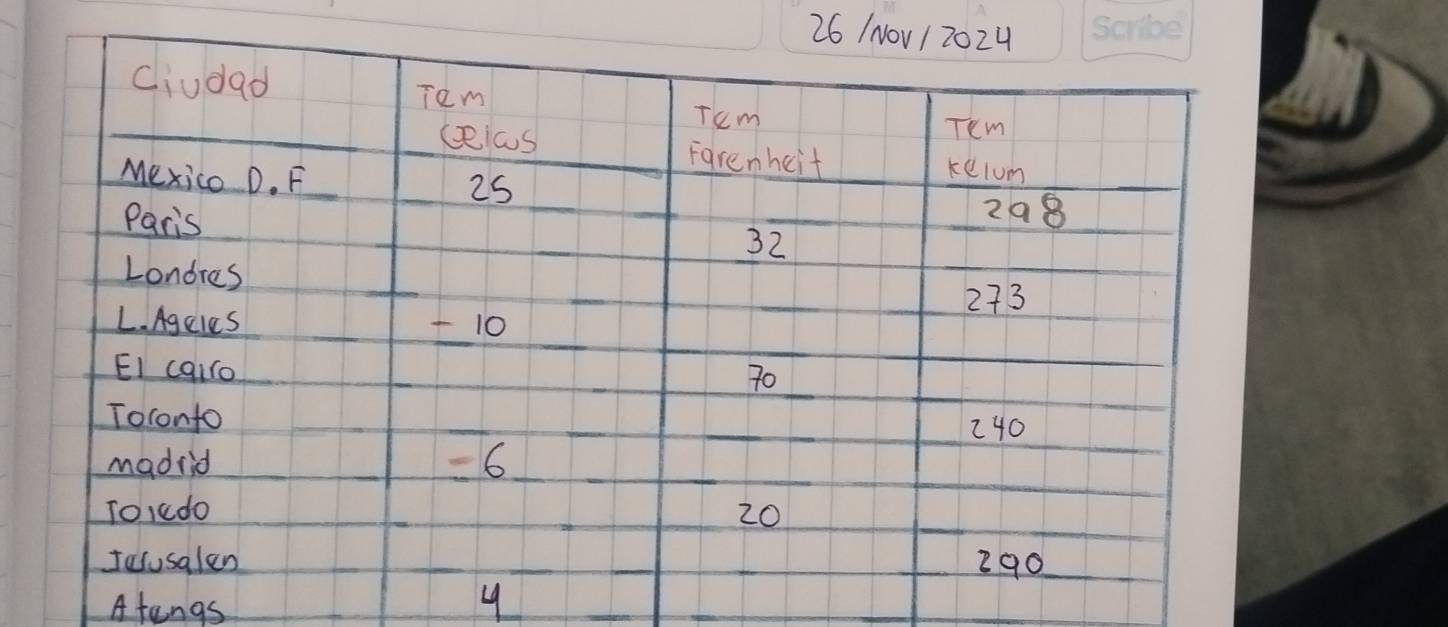 26/Nov/2024
Scribe
Ciudad Tem Celcus Tem Farenheit Tem Kelum
Mexico D.F 25 298
Paris 32
Londres 273
L.Ageles -10
El cairo 70
Toronto 240
madrid -6
Toledo 20
Jerusalen 290
Atenas 4